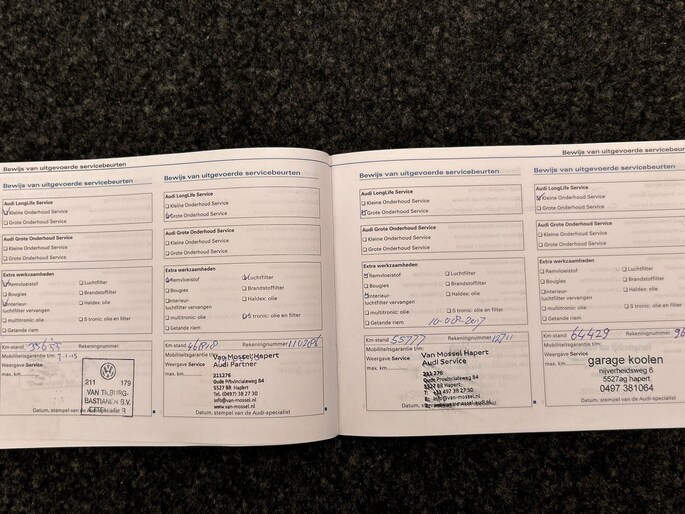 Bewijs van uitgevoerde servicebeurten
Bewijs van uitgevoerde servicebeurten
Audi LongLife Service
Kleine Onderhoud Service
Grote Onderhoud Service
Audi Grote Onderhoud Service
Kleine Onderhoud Service
Grote Onderhoud Service
Extra werkzaamheden
Remvloeistof
Luchtfilter
Bougies
Brandstoffilter
Interieur-
luchtfilter vervangen
Haldex: olie
multitronic: olie
S tronic: olie en filter
Getande riem
Km-stand
Rekeningnummer
Mobiliteitsgarantie t/m:
Weergave Service
max. km
211 179
VAN TILBURG-
BASTIANEN B.V.
Datum, stempel van de Audi-specialist
Bewijs van uitgevoerde servicebeurten
Audi LongLife Service
Kleine Onderhoud Service
Grote Onderhoud Service
Audi Grote Onderhoud Service
Kleine Onderhoud Service
Grote Onderhoud Service
Extra werkzaamheden
Remvloeistof
Luchtfilter
Bougies
Brandstoffilter
Interieur-
luchtfilter vervangen
Haldex: olie
multitronic: olie
S tronic: olie en filter
Getande riem
Km-stand 46818 Rekeningnummer
Mobiliteitsgarantie t/m:
Weergave Service
max. km
Van Mossel Hapert
Audi Partner
211276
Oude Provincialeweg 84
5527 BR Hapert
Tel. (0497) 38 27 30
info@van-mossel.nl
www.van-mossel.nl
Datum, stempel van de Audi-specialist
Bewijs van uitgevoerde servicebeurten
Bewijs van uitgevoerde servicebeurten
Audi LongLife Service
Kleine Onderhoud Service
Grote Onderhoud Service
Audi Grote Onderhoud Service
Kleine Onderhoud Service
Grote Onderhoud Service
Extra werkzaamheden
Remvloeistof
Luchtfilter
Bougies
Brandstoffilter
Interieur-
luchtfilter vervangen
Haldex: olie
multitronic: olie
S tronic: olie en filter
Getande riem
10-08-2017
Km-stand 55777 Rekeningnummer
Mobiliteitsgarantie t/m:
Weergave Service
max. km
Van Mossel Hapert
Audi Service
211 276
Oude Provincialeweg 84
5527 BR Hapert
Datum, stempel van de Audi-specialist
Bewijs van uitgevoerde servicebeurten
Audi LongLife Service
Kleine Onderhoud Service
Grote Onderhoud Service
Audi Grote Onderhoud Service
Kleine Onderhoud Service
Grote Onderhoud Service
Extra werkzaamheden
Remvloeistof
Luchtfilter
Bougies
Brandstoffilter
Interieur-
luchtfilter vervangen
Haldex: olie
multitronic: olie
S tronic: olie en filter
Getande riem
Km-stand 64429 Rekeningnummer
Mobiliteitsgarantie t/m:
Weergave Service
max. km
garage koolen
nijverheidsweg 6
5527ag hapert
0497 381064
Datum, stempel van de Audi-specialist